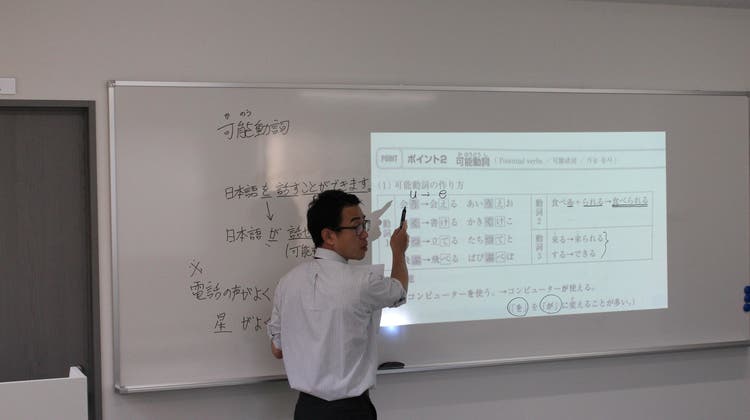 かのう
可能動詞
日本語を話すことができます
↓
日本語が話せ
(可能
※
電話の声がよく
星がよく
POINT ポイント2 可能動詞 (Potential verbs / 可能动词
(1) 可能動詞の作り方
u → e
会う→会える あいうえお
→書ける かきくけこ
→立てる たちつてと
→飛べる ばびぶべぼ
動詞2 食べる+られる→食べられる
動詞3 来る→来られる
する→できる
コンピューターを使う。→コンピューターが使える。
(「を」を「が」に変えることが多い。)